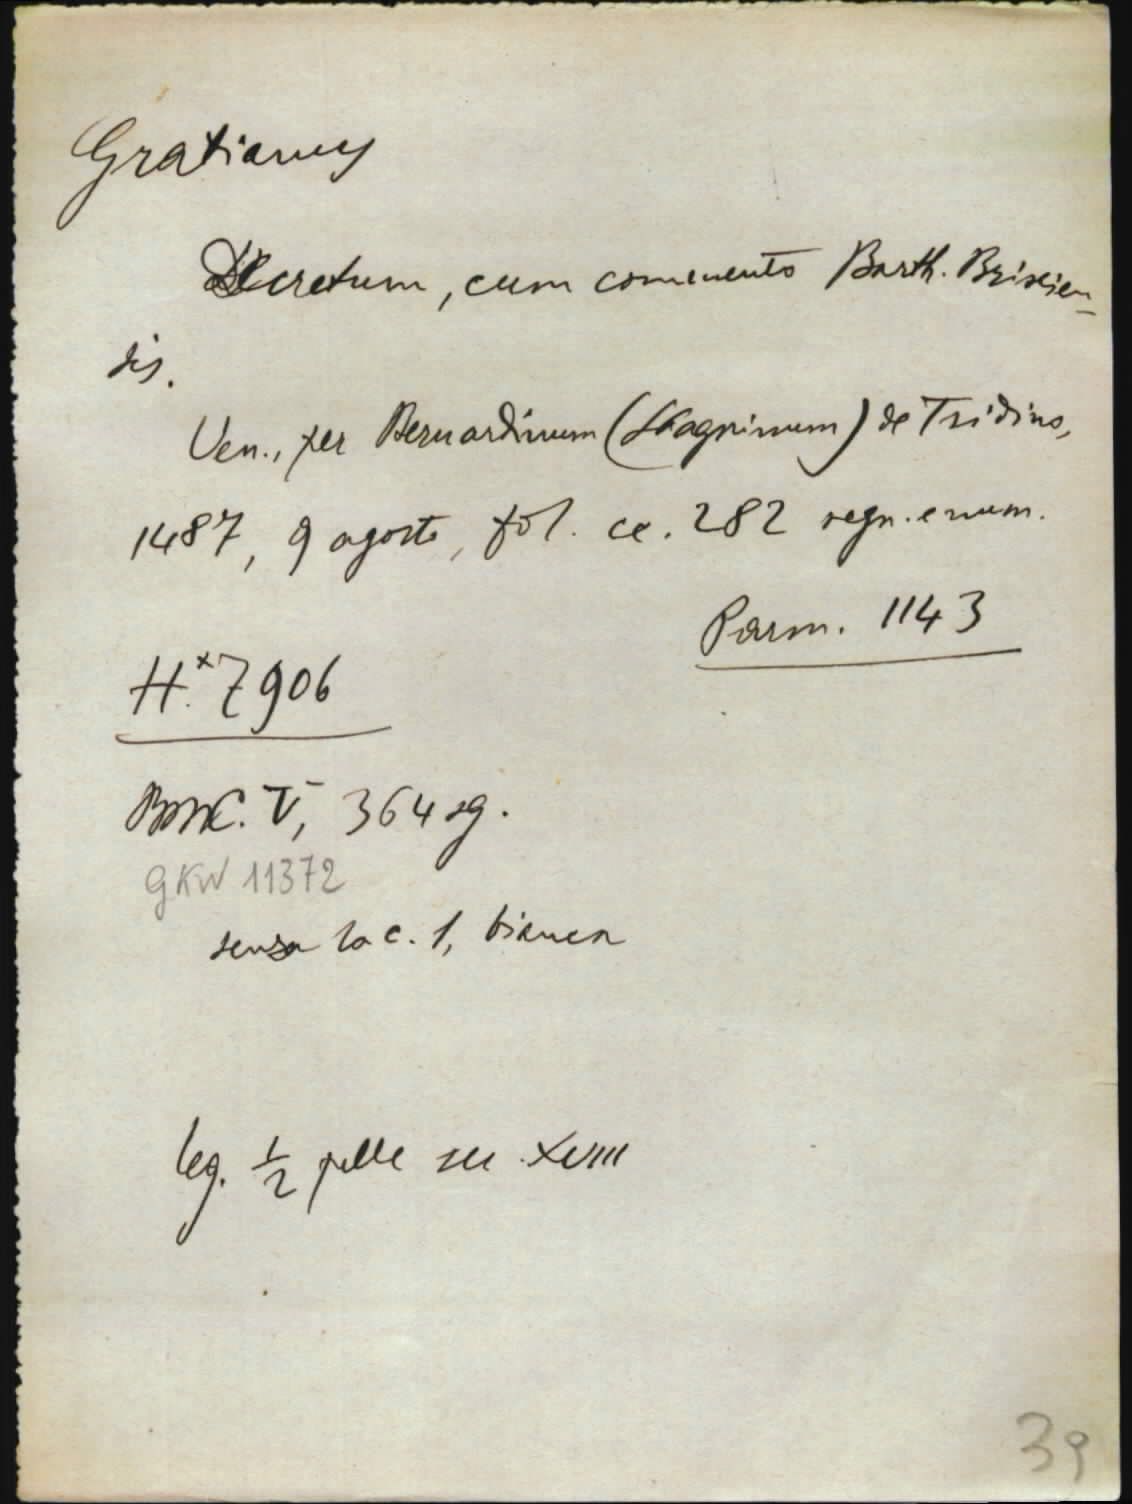 Gratianus
Decretum, cum commento Barth. Brixien-
sis.
Ven., per Bernardinum (Stagninum) de Tridino,
1487, 9 agosto, fol. cc. 282 segn. e num.
Parm. 1143
H.* 7906
BMC. V, 364 sg.
GKW 11372
senza la c. 1, bianca
leg. 1/2 pelle sec. XVIII
39